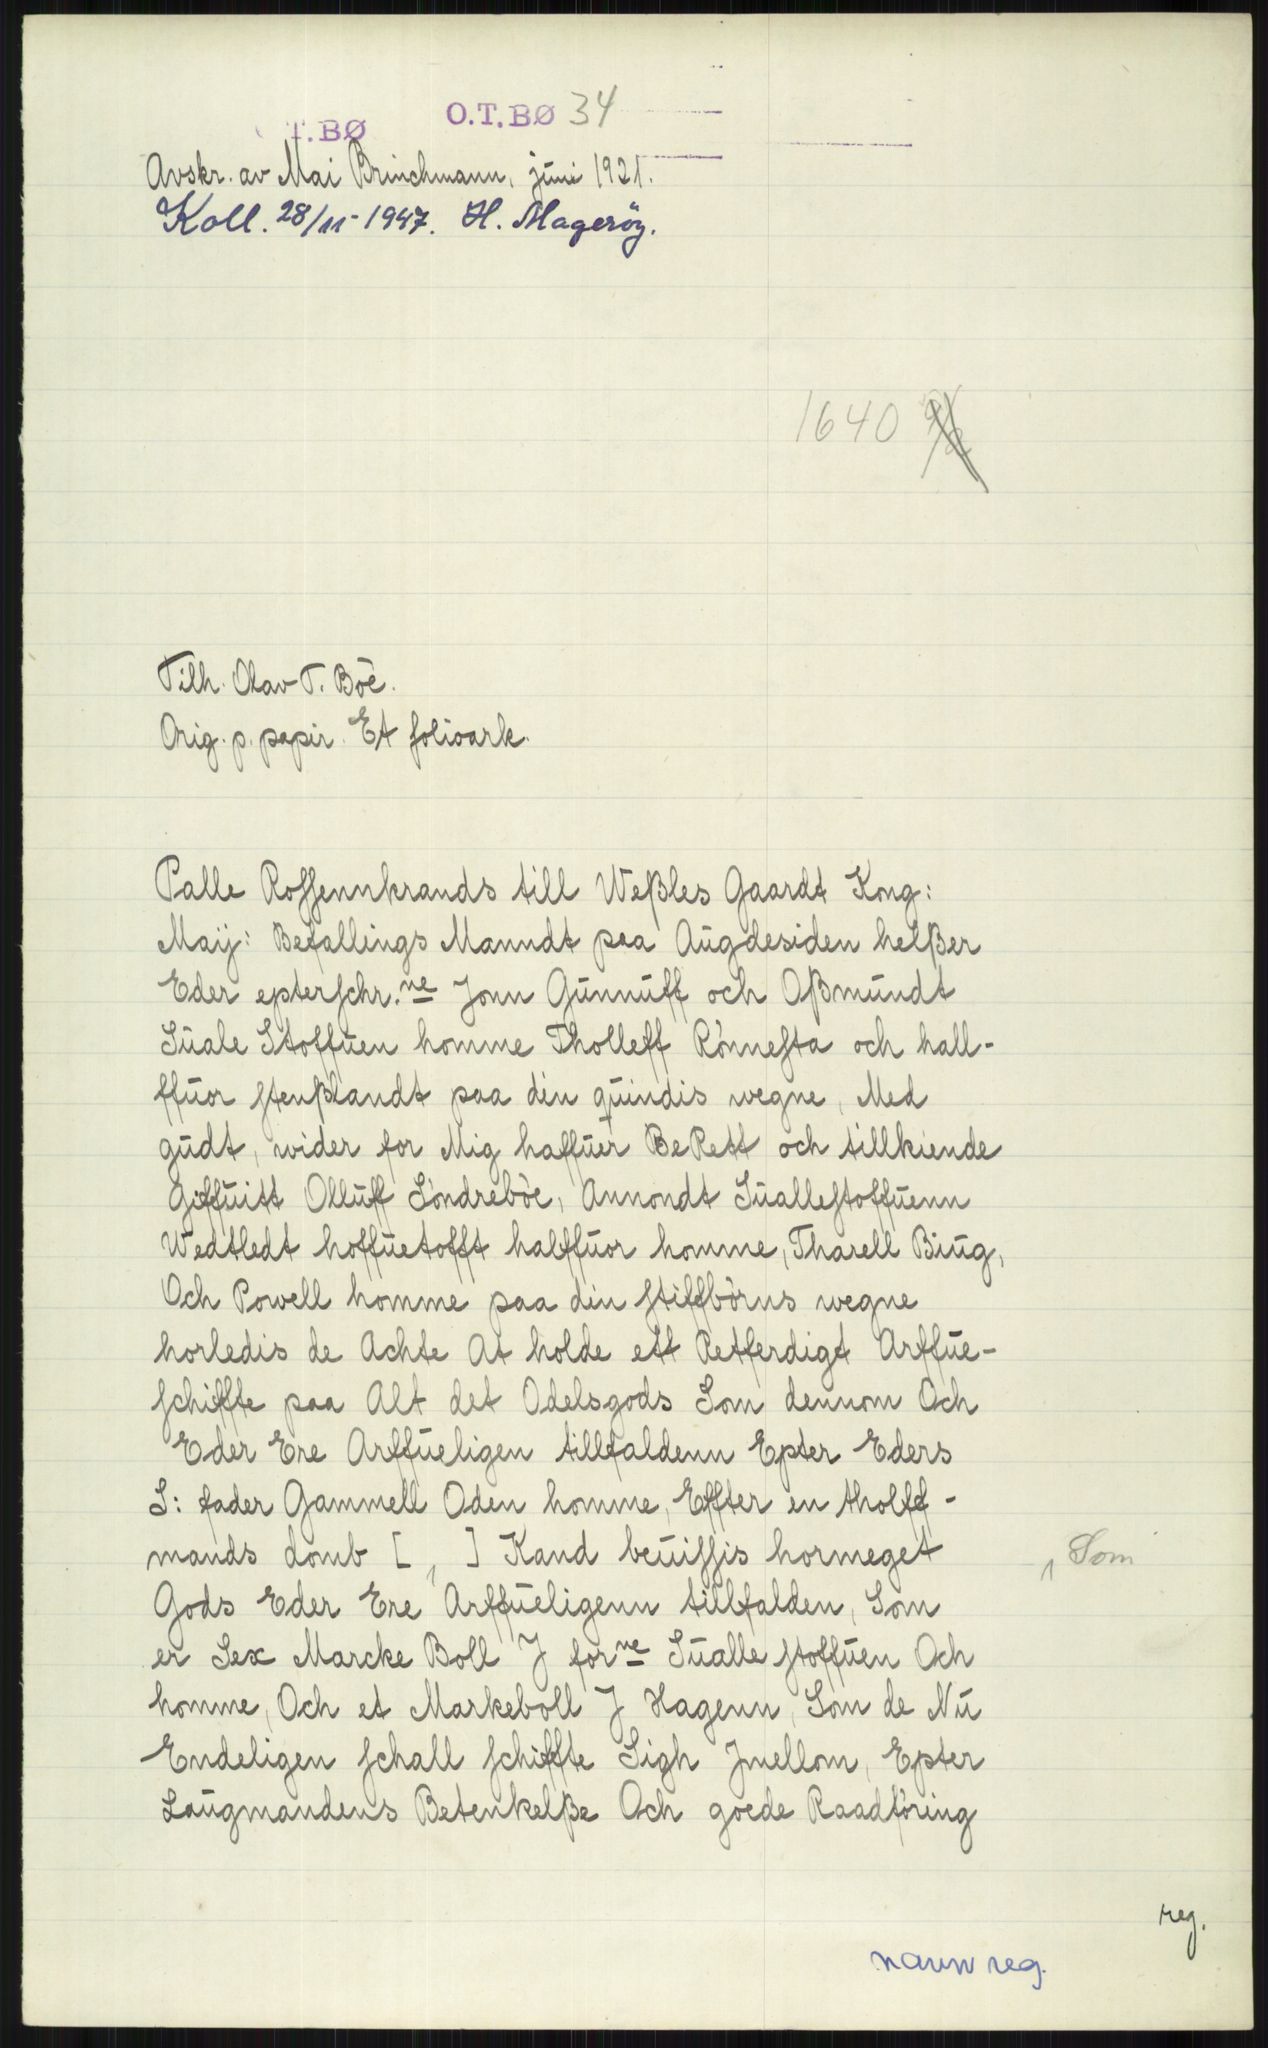 T.BØ O.T.BØ 34
Avskr. av Mai Brinchmann, juni 1921.
Koll. 28/11-1947. H. Magerøy.
1640
Tilh. Olav T. Böe.
Orig. p. papir. Et folioark.
Palle Rossennkrands till Weßles Gaardt Kong:
Maÿ: Befallings Manndt paa Augdesiden helßer
Eder epterschr.ne Jonn Gunnuff och Oßmundt
Suale Stoffuen homme Tholleff Rönnesta och hall-
ffuor stenßlandt paa din quindis wegne, Med
gudt, wider for Mig haffuer BeRett och tillkiende
Giffuitt Olluff Söndreböe, Annondt Suallestoffuenn
Wedtledt hoffuetofft halffuor homme, Tharell Biug,
Och Powell homme paa din stiffbörns wegne
horledis de Achte At holde ett Retferdigt Arffue-
schiffte paa Alt det Odelsgods Som dennom Och
Eder Ere Arffueligen tillfaldenn Epter Eders
S: fader Gammell Oden homme, Effter en tholff-
mands domb [ , ] Kand beuissis hormeget , Som
Gods Eder Ere Arffueligenn tillfalden, Som
er Sex Marcke Boll J forne Sualle stoffuen Och
homme, Och et Markeboll J Hagenn, Som de Nu
Endeligen schall schiffte Sigh Jmellom, Epter
Laugmandens Betenkelße Och goede Raadföring
reg.
navn reg.